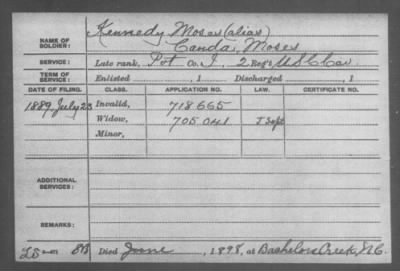 NAME OF SOLDIER: Kennedy Moses (alias)
Canda, Moses
SERVICE: Late rank, Pvt Co. I, 2 Reg't U S C Cav
TERM OF SERVICE: Enlisted , 1 Discharged , 1
DATE OF FILING. CLASS. APPLICATION NO. LAW. CERTIFICATE NO.
1889 July 23 Invalid, 718665
Widow, 705041
Minor,
ADDITIONAL SERVICES:
REMARKS:
Died June , 1898, at Bachelors Creek, N.C.